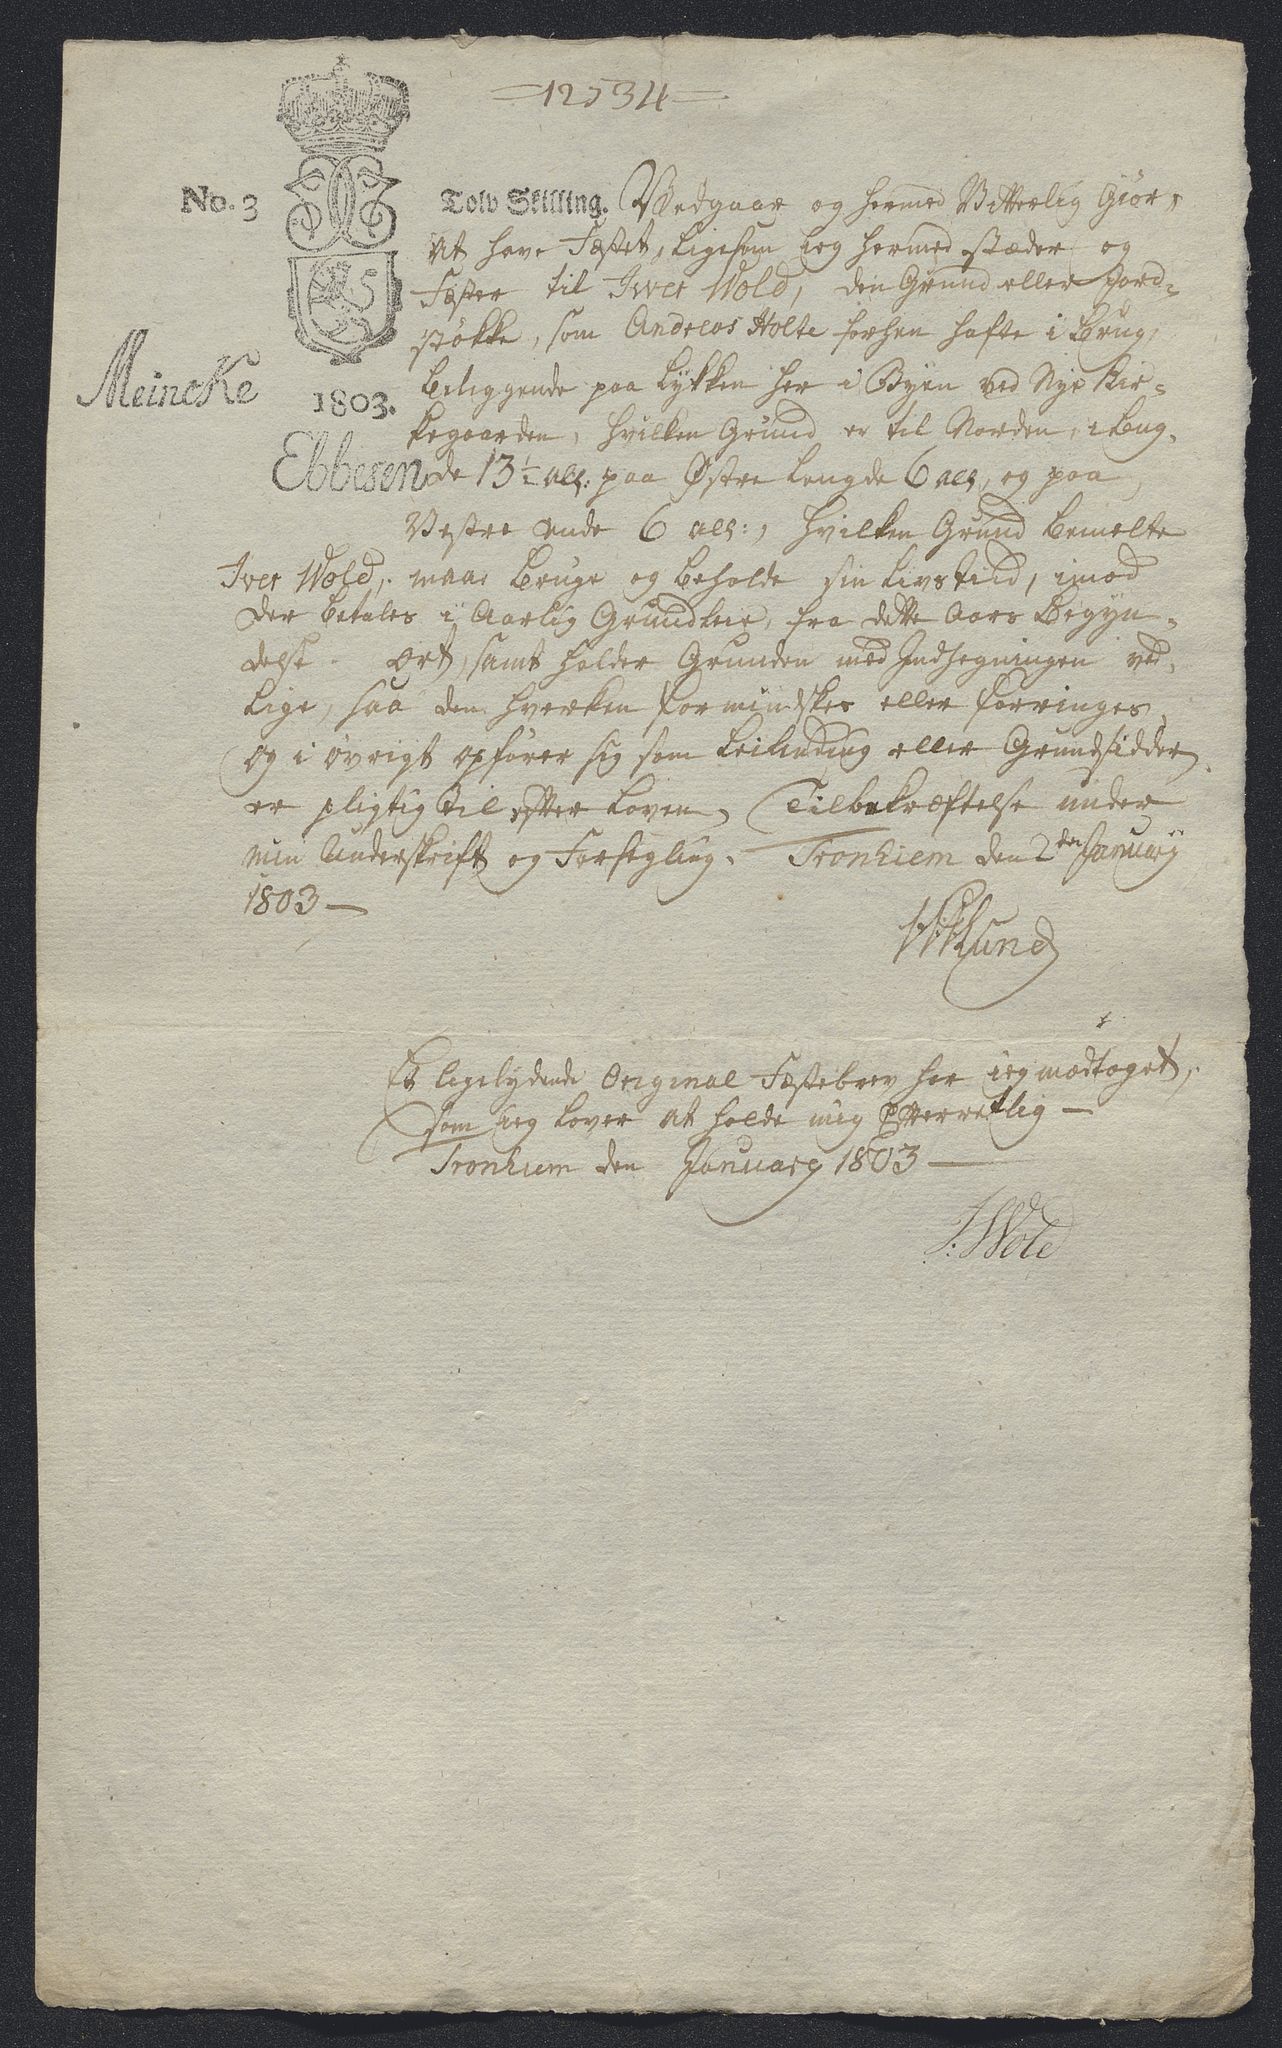 =12534=
No. 3 Tolv Skilling. Vedgaar og hermed Vitterlig Giør,
At have Fæstet, ligesom ieg hermed stæder og
Fæster til Iver Wold, den Grund eller Jord-
støkke, som Andreas Holte forhen hafte i Brug,
beliggende paa Løkken her i Byen ved Nye Kir-
Meincke
1803.
kegaarden, hvilken Grund er til Norden, i Læng-
Ebbesen
de 13½ All: paa Østre Længde 6 All, og paa
Vestre Ende 6 All:, hvilken Grund bemelte
Iver Wold, maae bruge og beholde sin Livstiid, imod
der betales i Aarlig Grundleie, fra dette Aars Begyn-
delse ort, samt holder Grunden med Indhegningen ved-
lige, saa den hverken formindskes eller forringes,
og i øvrigt opfører sig som Leilænding eller Grundsidder
er pligtig til efter Loven, Til bekræftelse under
min Underskrift og Forsegling. Tronhiem den 2den Januarÿ
1803—
Lund
Et ligelydende Original Fæstebrev har ieg modtaget,
som ieg lover at holde mig Efterretlig —
Tronhiem den Januarÿ 1803 —
I: Wold